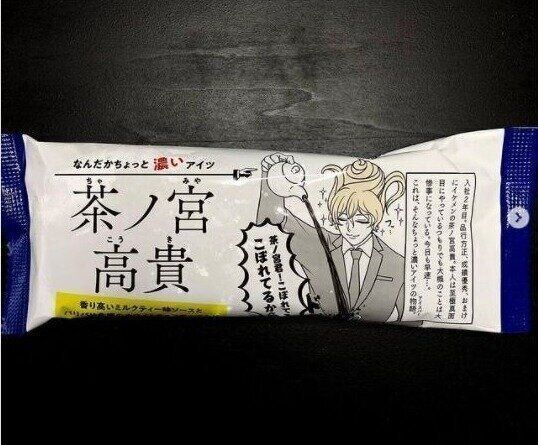 なんだかちょっと濃いアイツ
茶ノ宮
ちゃ みや
高貴
こう き
香り高いミルクティー味ソースと
茶ノ宮君!こぼれて
こぼれてるか
入社2年目。品行方正、成績優秀、おまけ
にイケメンの茶ノ宮高貴。本人は至極真面
目にやっているつもりでも大概のことは大
惨事になっている。今日も早速…。
これは、そんなちょっと濃いアイツの物語。